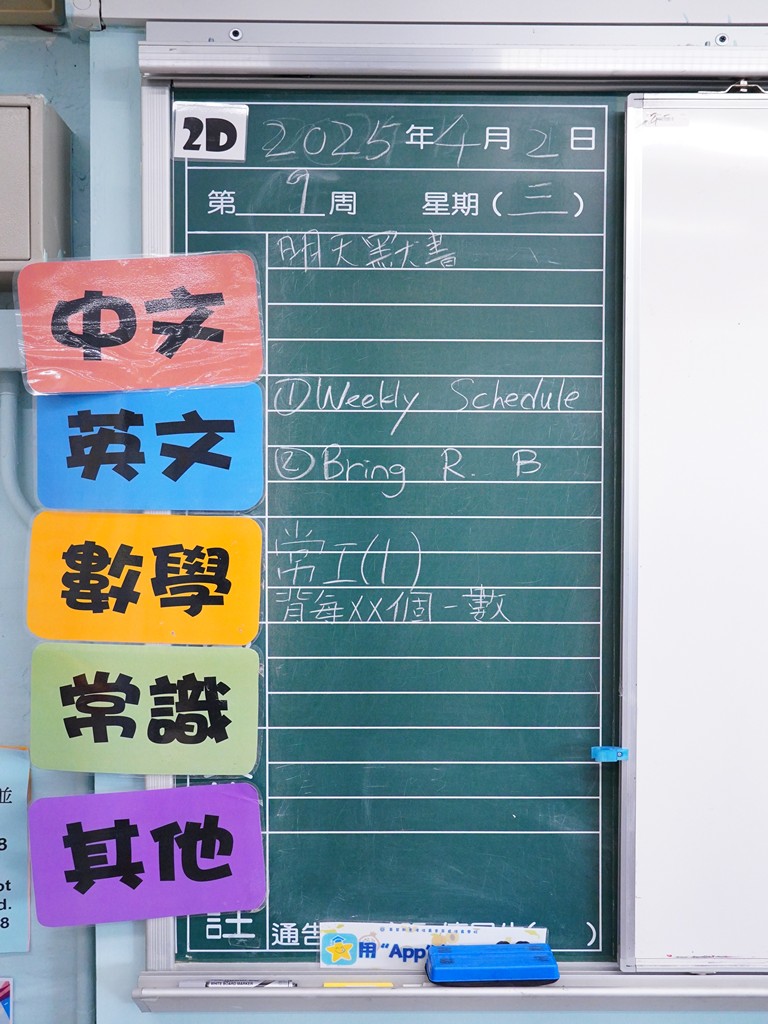 2D 2025年4月2日
第9周 星期(三)
中文 明天默書
英文 ①Weekly Schedule
②Bring R. B
數學 常工(1)
背每XX個一數
常識
其他
註 通告
用 "App"
並
8
ot
d.
8
WHITE BOARD MARKER